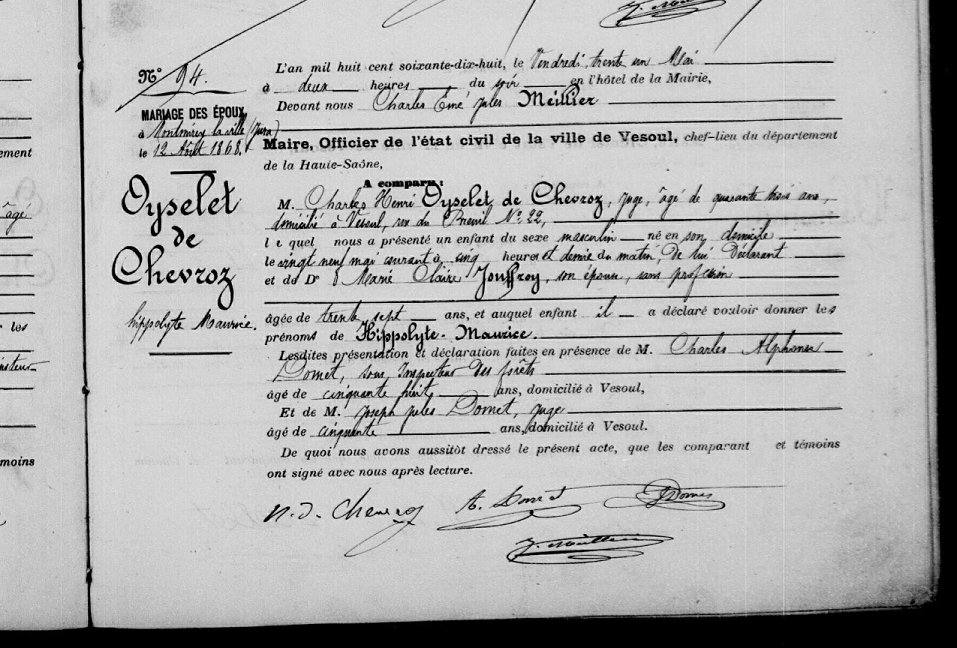 N° 94.
MARIAGE DES ÉPOUX
à Montmirey la ville (Jura)
le 12 Août 1868.
Oyselet
de
Chevroz
hippolyte Maurice.
L'an mil huit cent soixante-dix-huit, le Vendredi trente un Mai
à deux heures du soir en l'hôtel de la Mairie,
Devant nous Charles Emé jules Meillier
Maire, Officier de l'état civil de la ville de Vesoul, chef-lieu du département
de la Haute-Saône,
A comparu:
M. Charles Henri Oyselet de Chevroz, juge, âgé de quarante trois ans,
domicilié à Vesoul, rue du Breuil N° 22,
lequel nous a présenté un enfant du sexe masculin né en son domicile
le vingt neuf mai courant à cinq heures et demie du matin, de lui Déclarant
et de De Marie Claire Jouffroy, son épouse, sans profession
âgée de trente sept ans, et auquel enfant il a déclaré vouloir donner les
prénoms de Hippolyte-Maurice.
Lesdites présentation et déclaration faites en présence de M. Charles Alphonse
Domet, sous Inspecteur des forêts
âgé de cinquante huit ans, domicilié à Vesoul,
Et de M. joseph jules Domet, juge
âgé de cinquante ans, domicilié à Vesoul.
De quoi nous avons aussitôt dressé le présent acte, que les comparant et témoins
ont signé avec nous après lecture.
h. d. Chevroz A. Domet J Domet
J. Meillier
ement
âgé
les
émoins